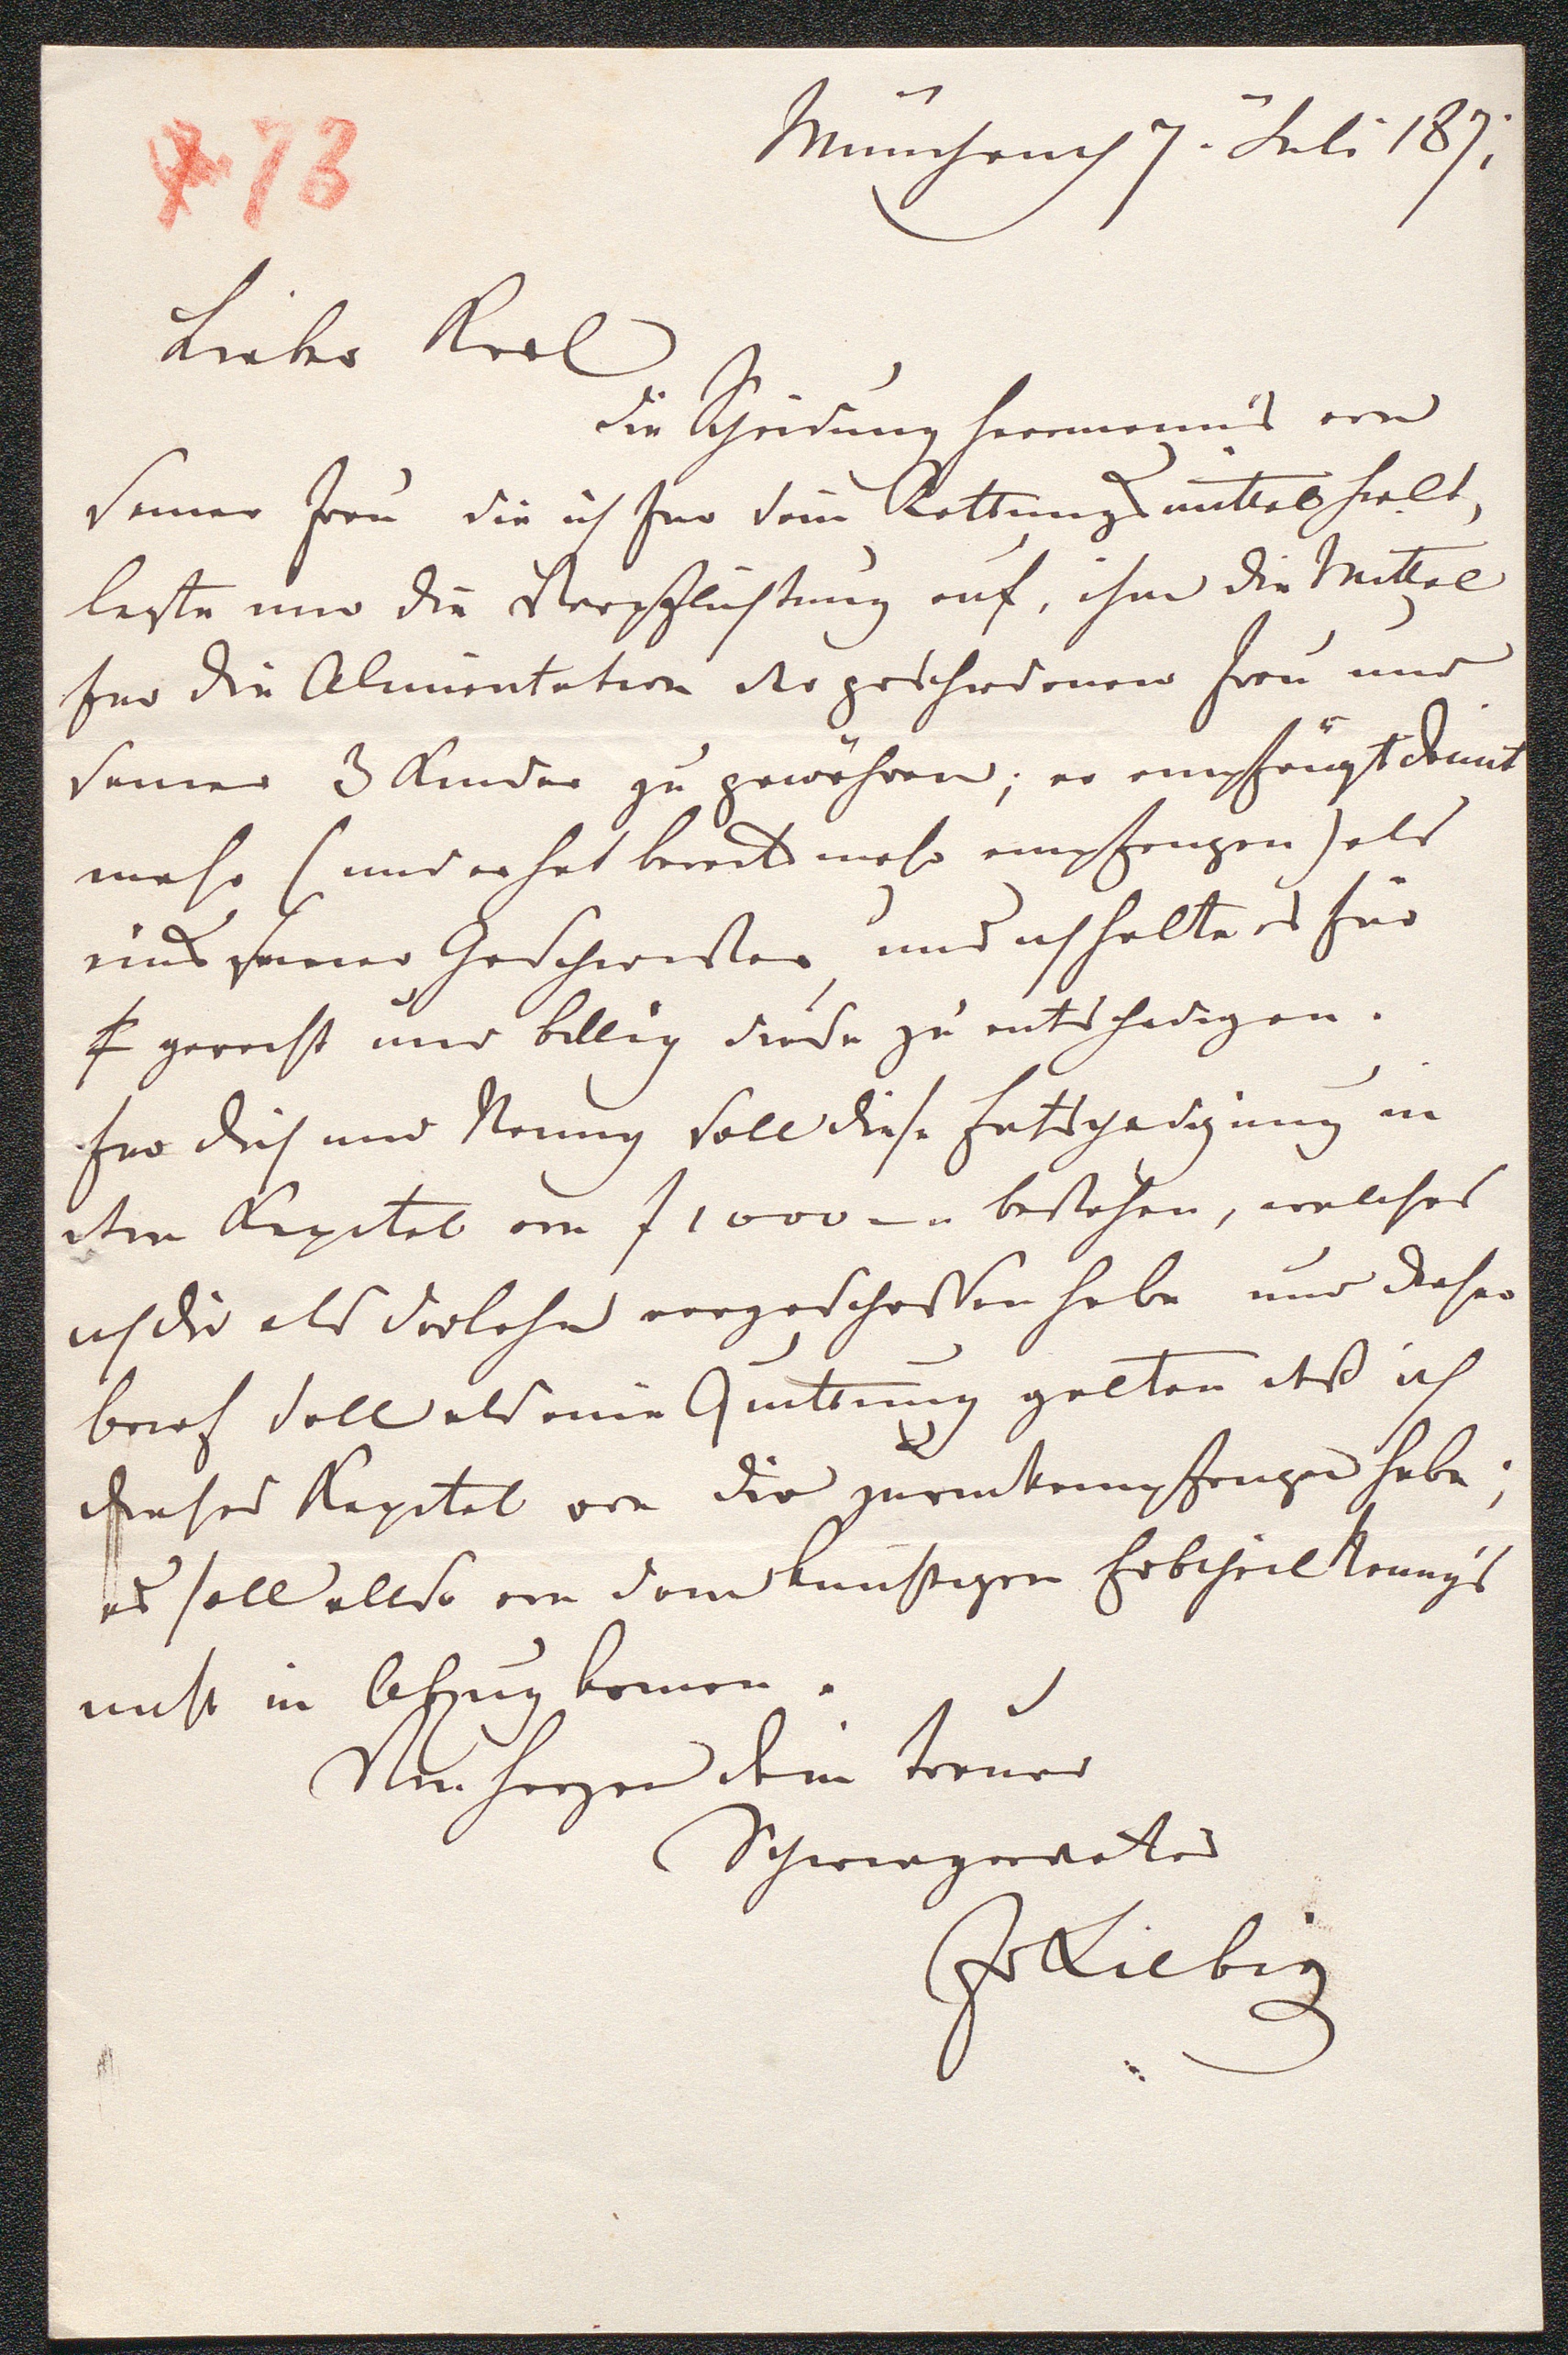 73
München 7. Juli 1871
Lieber Karl
die Scheidung Hermann's von
seiner Frau die ich für sein Rettungsmittel halt,
legte mir die Verpflichtung auf, ihm die Mittel
für die Alimentation der geschiedenen Frau und
seiner 3 Kinder zu gewähren; er empfängt damit
mehr (und er hat bereits mehr empfangen) als
eins seiner Geschwister, und ich halte es für
gerecht und billig diese zu entschädigen.
Für dich und Nanny soll diese Entschädigung in
dem Kapital von f 1000 — bestehen, welches
ich dir als Darlehn vorgeschossen habe und dieser
brief soll als eine Quittung gelten daß ich
dieses Kapital von dir zurückempfangen habe;
es soll also von dem künftigen Erbtheil Nanny's
nicht in Abzug komen.
Von Herzen dein treuer
Schwiegervater
Jv Liebig